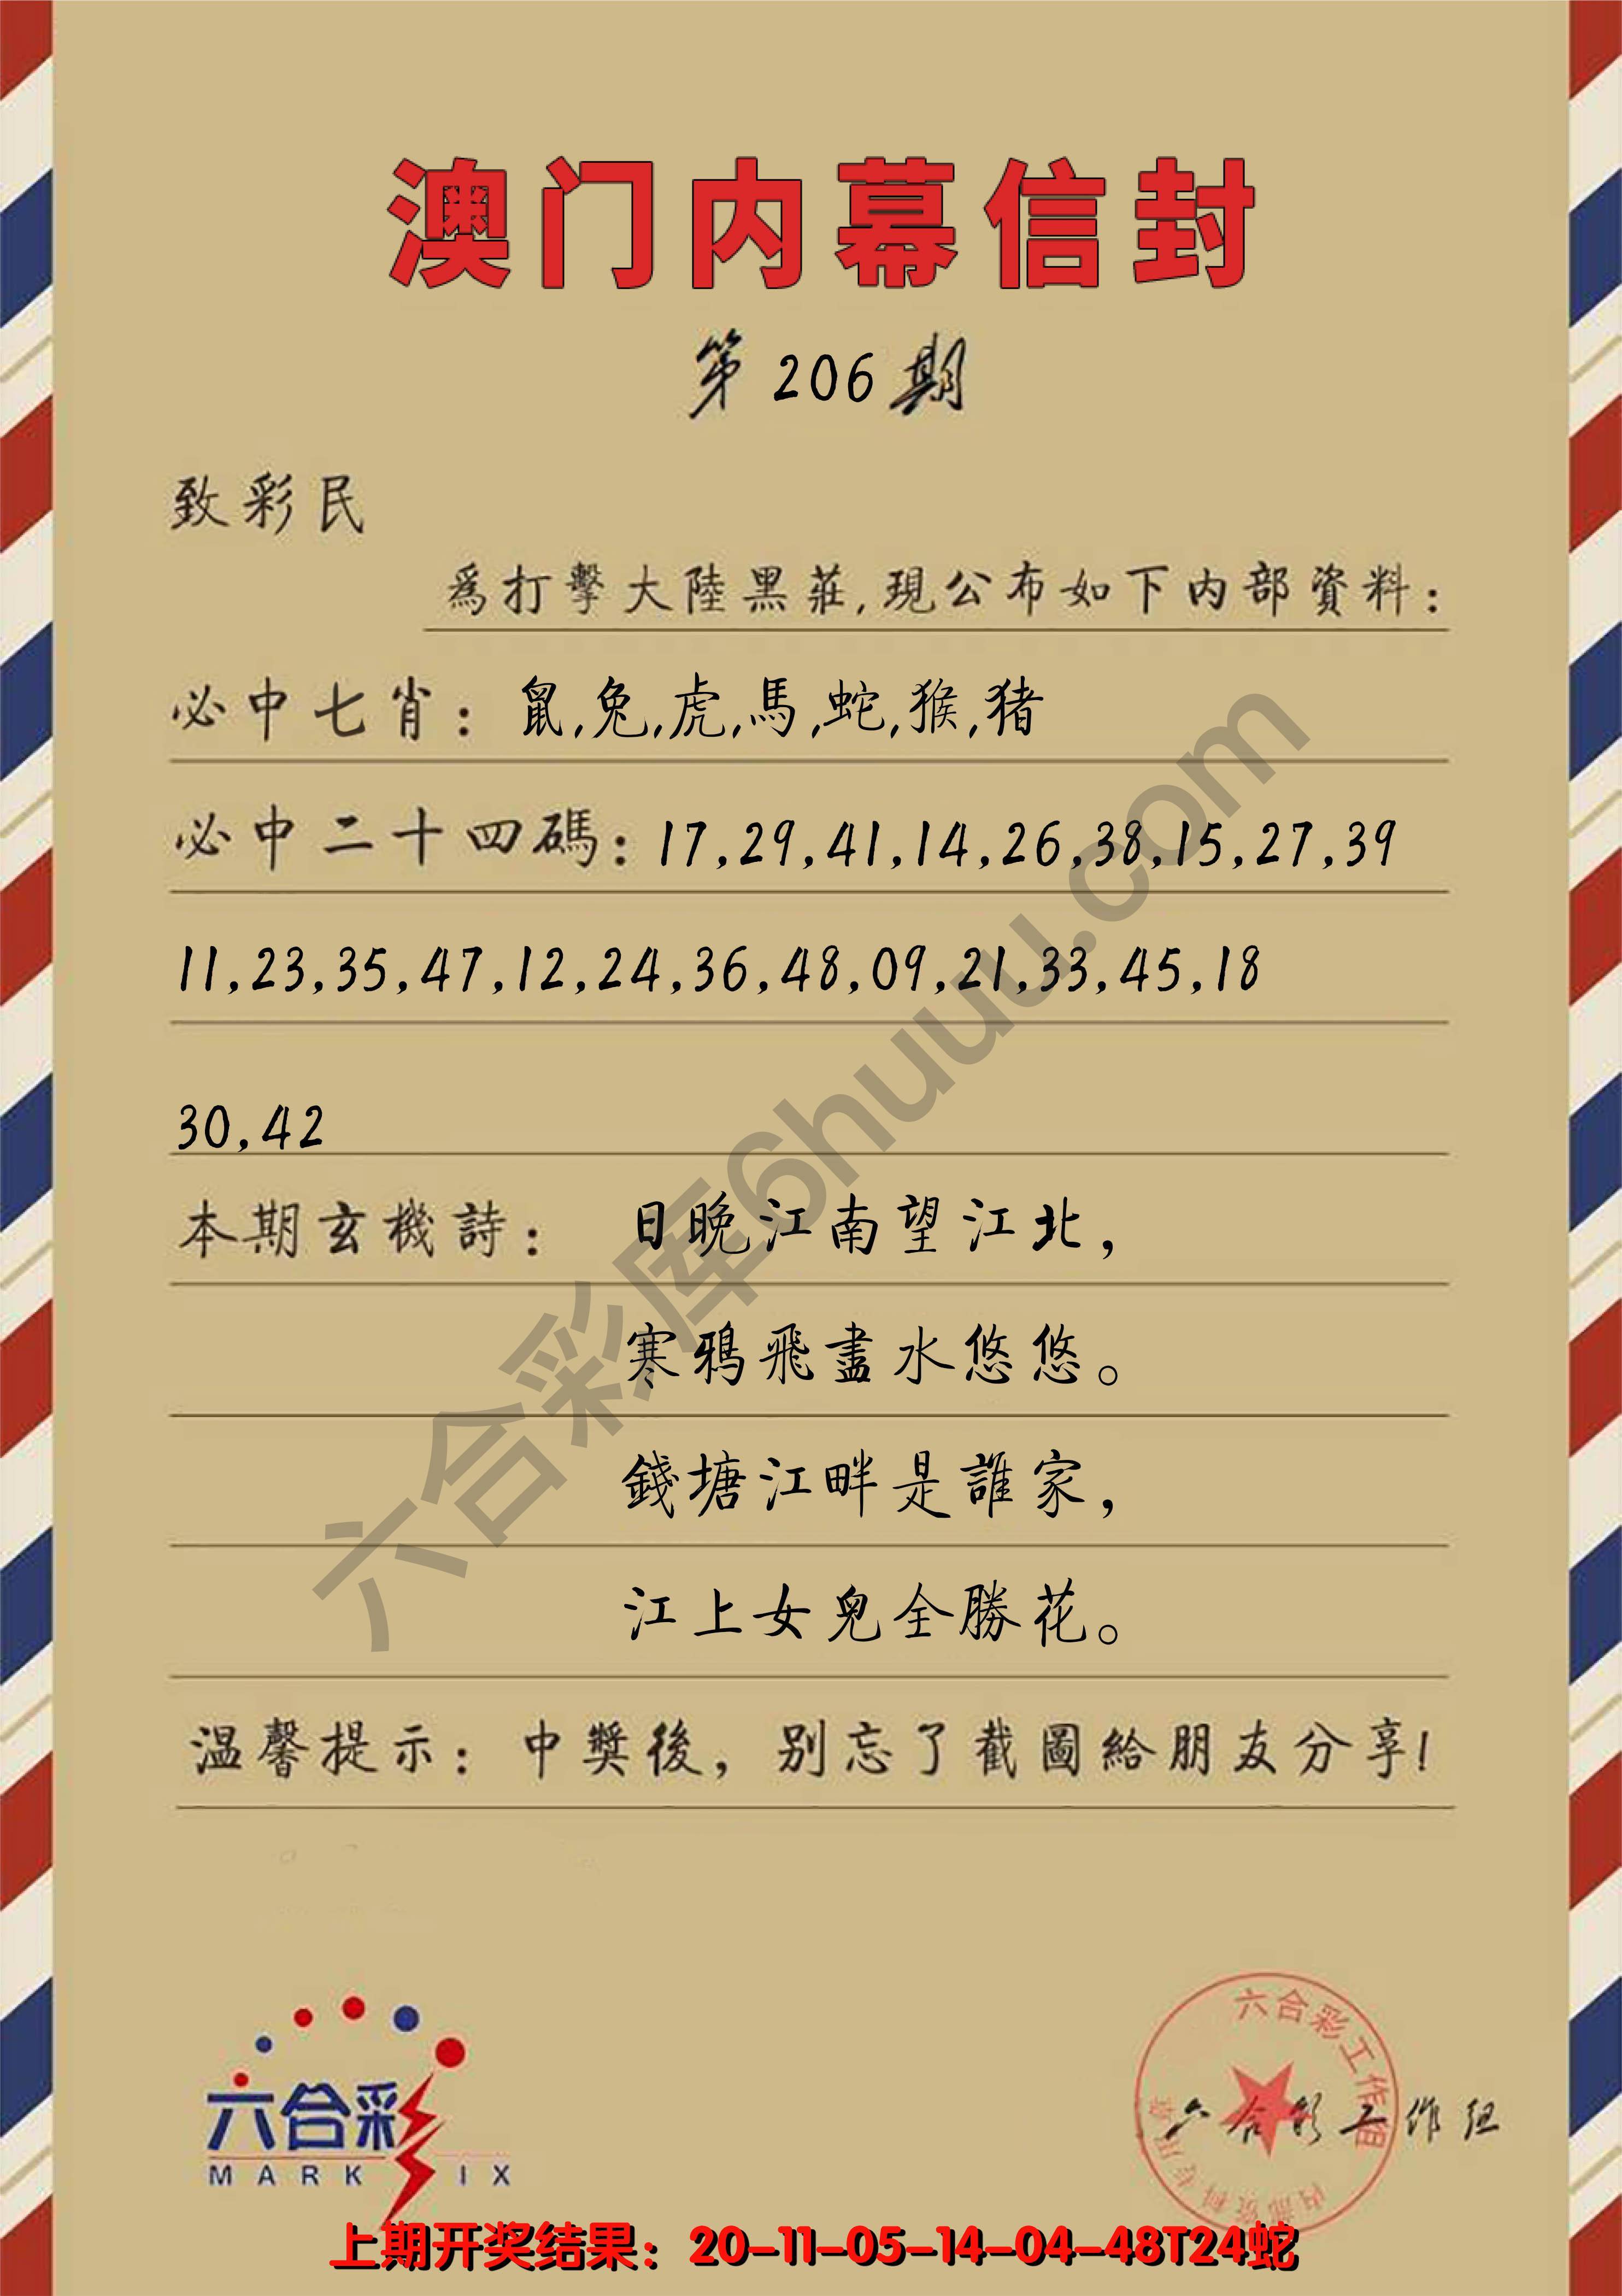 澳门内幕信封
第206期
致彩民
為打擊大陸黑莊,現公布如下内部資料:
必中七肖: 鼠,兔,虎,馬,蛇,猴,猪
必中二十四碼: 17,29,41,14,26,38,15,27,39
11,23,35,47,12,24,36,48,09,21,33,45,18
30,42
本期玄機詩: 日晚江南望江北,
寒鴉飛盡水悠悠。
錢塘江畔是誰家,
江上女兒全勝花。
温馨提示: 中獎後, 别忘了截圖給朋友分享!
六合彩库6huuu.com
六合彩
MARK IX
六合彩工作组
六合彩工作组
内部资料专用章
上期开奖结果: 20-11-05-14-04-48T24蛇